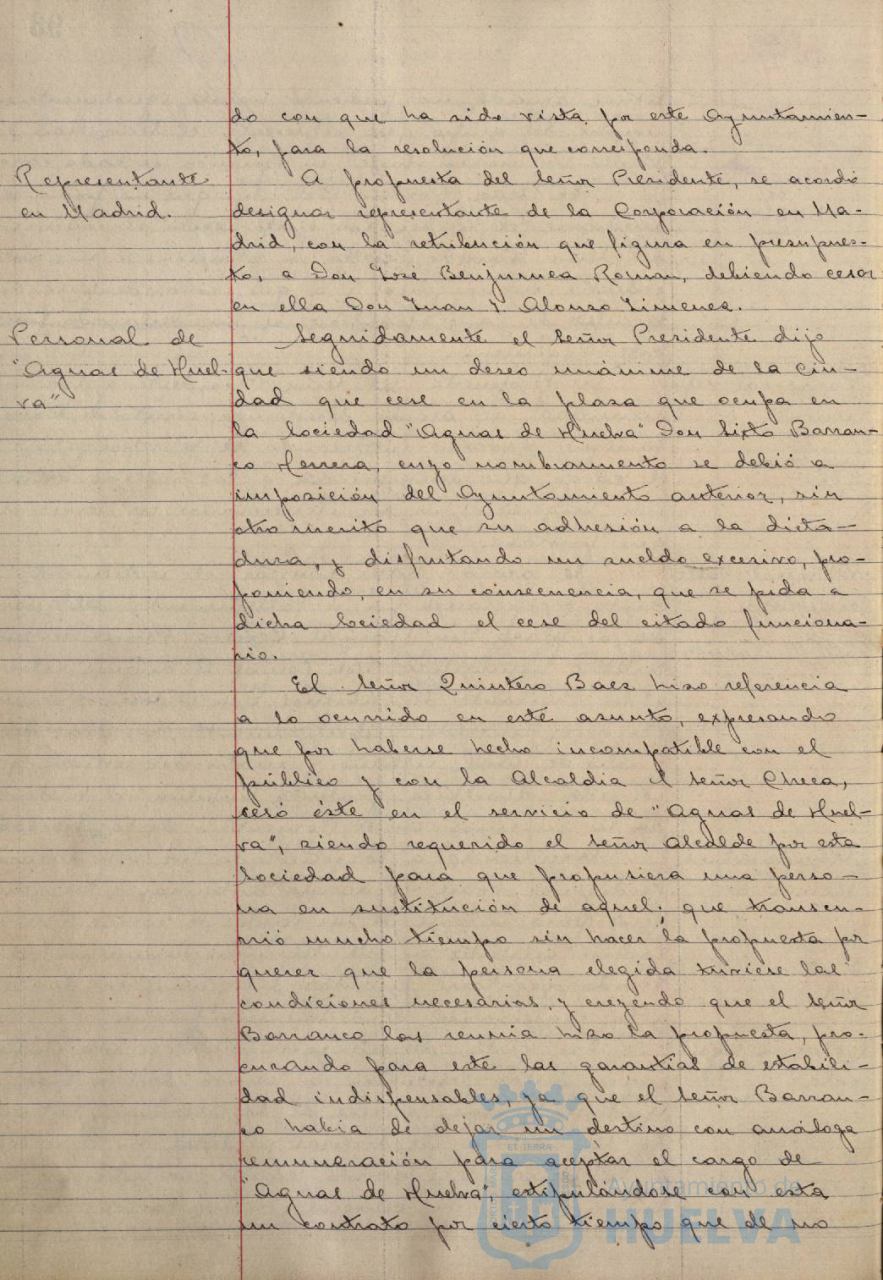 do con que ha sido vista por este Ayuntamien-
to, para la resolución que corresponda.
Representante
en Madrid.
A propuesta del Señor Presidente, se acordó
designar representante de la Corporación en Ma-
drid, con la retribución que figura en presupues-
to, a Don José Benjumea Roman, debiendo cesar
en ella Don Juan J. Alonso Jimenez.
Personal de
"Aguas de Huel-
va"
Seguidamente el Señor Presidente dijo
que siendo un deseo unánime de la Ciu-
dad que cese en la plaza que ocupa en
la Sociedad "Aguas de Huelva" Don Sixto Barran-
co Herrera, cuyo nombramiento se debió a
imposición del Ayuntamiento anterior, sin
otro merito que su adhesión a la dicta-
dura, y disfrutando un sueldo excesivo, pro-
poniendo, en su consecuencia, que se pida a
dicha Sociedad el cese del citado funciona-
rio.
El Señor Quintero Baez hizo referencia
a lo ocurrido en este asunto, expresando
que por haberse hecho incompatible con el
público y con la Alcaldia el Señor Checa,
cesó éste en el servicio de "Aguas de Huel-
va", siendo requerido el Señor Alcalde por esta
Sociedad para que propusiera una perso-
na en sustitución de aquel; que transcu-
rrió mucho tiempo sin hacer la propuesta por
querer que la persona elegida tuviese las
condiciones necesarias, y creyendo que el Señor
Barranco las reunia hizo la propuesta, pro-
curando para este las garantias de estabili-
dad indispensables, ya que el Señor Barran-
co habia de dejar un destino con análoga
remuneración para aceptar el cargo de
"Aguas de Huelva", estipulándose con esta
un contrato por cierto tiempo que de no
Ayuntamiento de
HUELVA